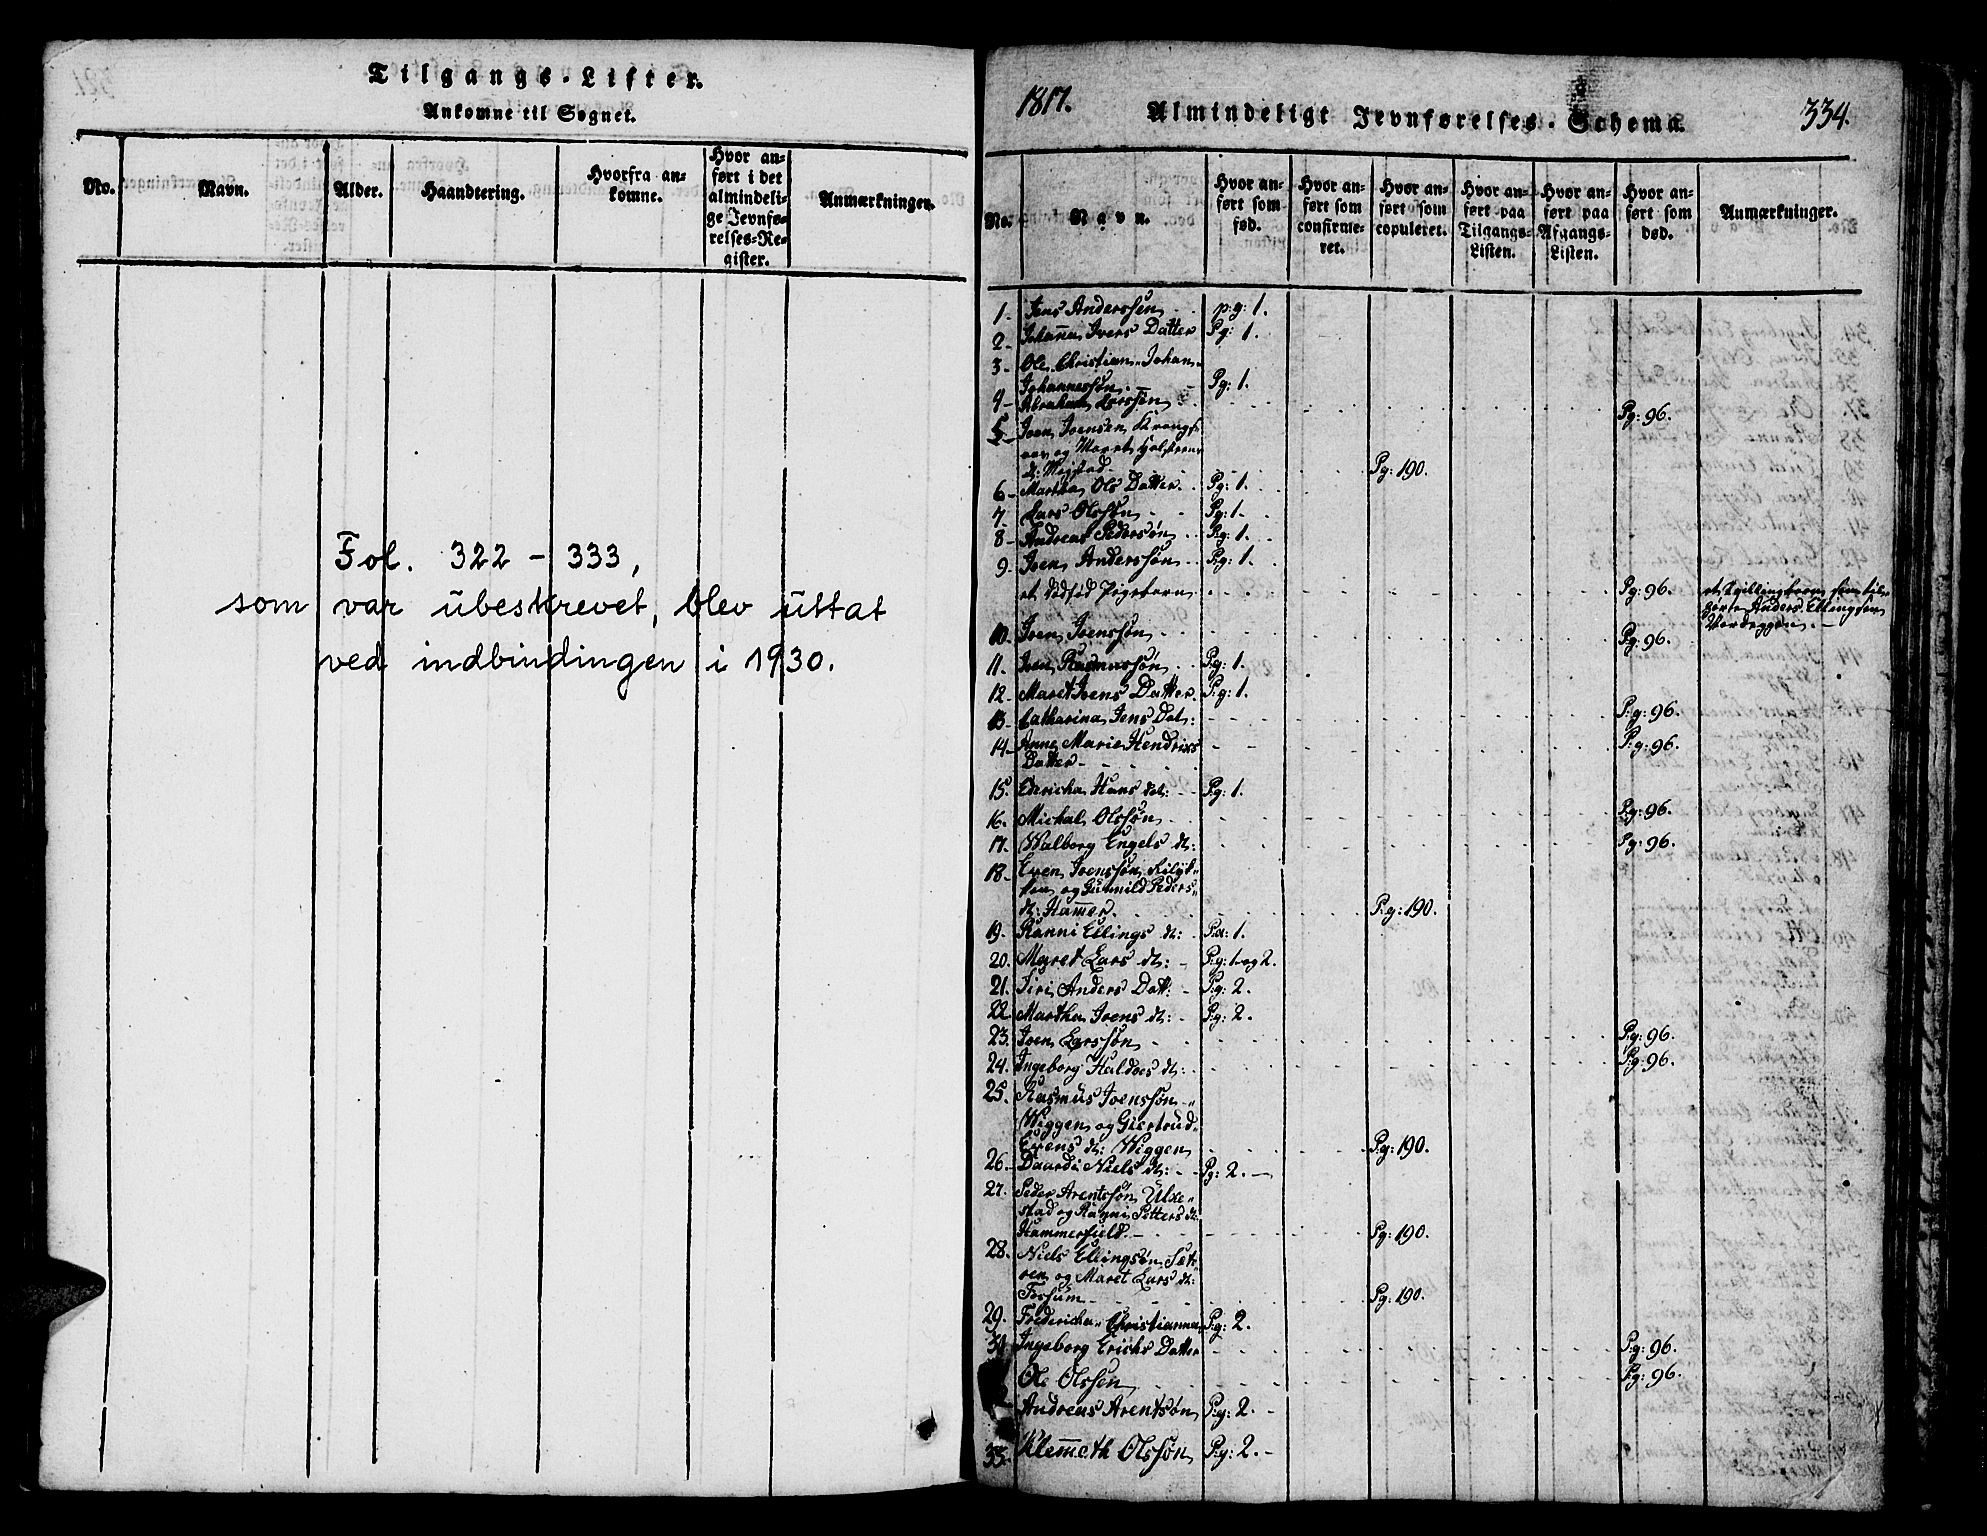 Tilgangs-Lister.
Ankomne til Sognet.
No.
Navn.
Alder.
Haandtering.
Hvorfra an-
komne.
Hvor an-
ført i det
almindeli-
ge Jevnfø-
relses-Re-
gister.
Anmærkninger.
Fol. 322 - 333,
som var ubeskrevet, blev uttat
ved indbindingen i 1930.
1817.
Almindeligt Jevnførelses-Schema.
334.
No.
Navn.
Hvor an-
ført som
fød.
Hvor an-
ført som
confirme-
ret.
Hvor an-
ført som
copuleret.
Hvor an-
ført paa
Tilgangs-
Listen.
Hvor an-
ført paa
Afgangs-
Listen.
Hvor an-
ført som
død.
Anmærkninger.
1. Jens Anderssen p:g: 1.
2. Johanna Ivers Datter Pg: 1.
3. Ole Christian Johan-
Johannessøn Pg: 1.
4. Abraham Larssen Pg: 96.
5. Joen Joensen
og Maret
dt: Pg: 190.
6. Martha Ols Datter Pg: 1.
7. Lars Olssøn Pg: 1.
8. Andreas Pedersøn Pg: 1.
9. Joen Anderssøn Pg: 1.
et dødfød Pigebarn Pg: 96. et Tvillingbarn som tilhø-
Anders Ellingsøn
10. Joen Joenssøn Pg: 96.
11. Joen Rasmussøn Pg: 1.
12. Maret Joens Datter P:g: 1.
13. Catharina Jens Dat: P:g: 96.
14. Anne Marie Hendrixs P:g: 96.
Datter
15. Edericha Hans dt: Pg: 1.
16. Michal Olssøn P:g: 96.
17. Walborg Engels dt: P:g: 96.
18. Even Joenssøn
og Gunnild Peders-
dt: Hamer P:g: 190.
19. Ranni Ellings dt: 1.
20. Maret Lars dt: P:g: 1 og 2.
21. Siri Anders Datt: P:g: 2.
22. Martha Joens dt: P:g: 2.
23. Joen Larssøn P:g: 96.
24. Ingeborg Haldoes dt: P:g: 96.
25. Rasmus Joenssøn
Wiggen og Giertrud
Evens dt: Wiggen P:g: 190.
26. Daardi Niels dt: Pg: 2.
27. Peder Arentssøn Ulve-
stad og Ragni Petters dt:
Hammerfield Pg: 190.
28. Niels Ellingsøn Sæt-
ren og Maret Lars dt:
Forsum Pg: 190.
29. Fredericha Christianna Pg: 2.
Ingeborg Erichs Datter P:g: 96.
Ole Olssen P:g: 96.
Andreas Arentsøn P:g: 2.
33. Klemeth Olssøn P:g: 2.